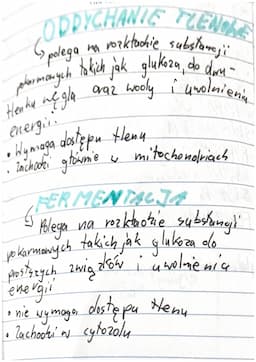 ODDYCHANIE TLENOWE
↳ polega na rozkładzie substancji
pokarmowych takich jak glukoza, do dwu-
tlenku węgla oraz wody i uwolnieniu
energii.
• Wymaga dostępu tlenu
• Zachodzi głównie w mitochondriach
FERMENTACJA
↳ Polega na rozkładzie substancji
pokarmowych takich jak glukoza do
prostszych związków i uwolnienia
energii
• nie wymaga dostępu tlenu
• Zachodzi w cytozolu